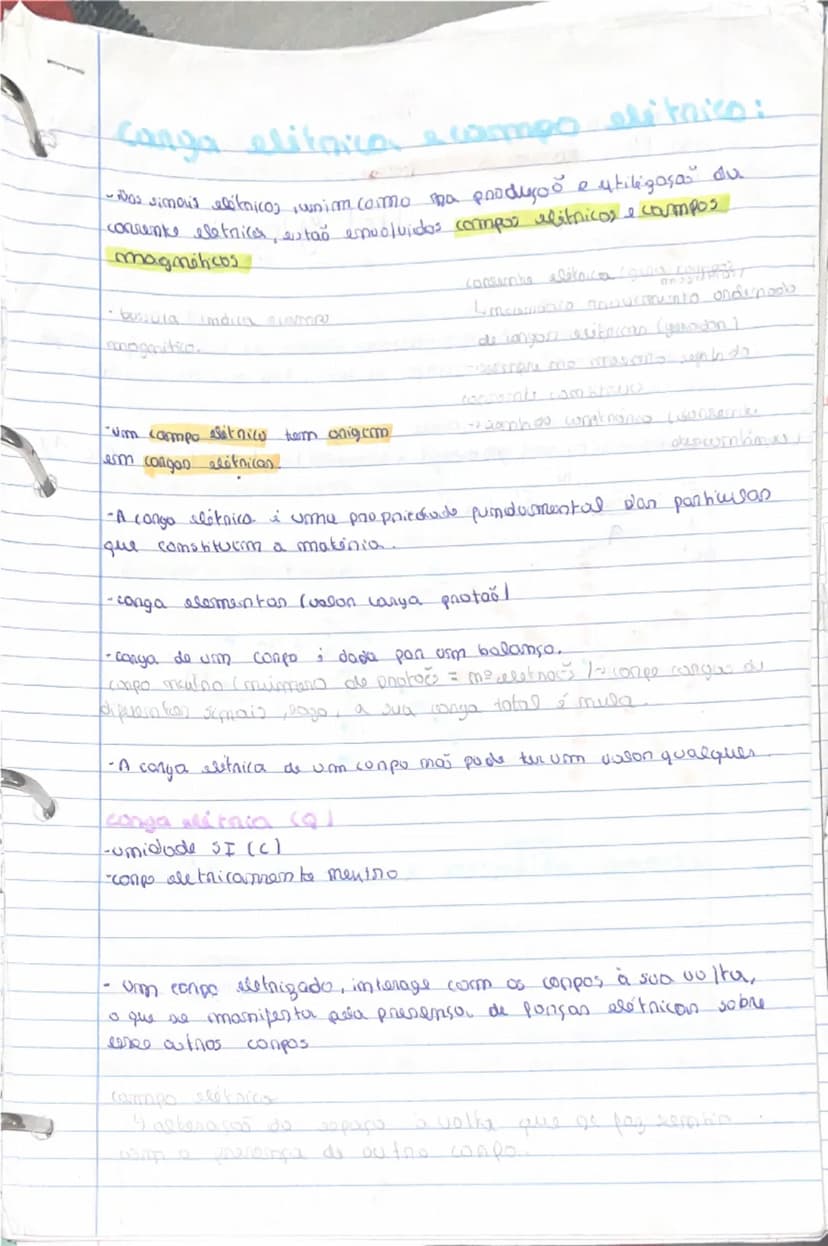 Carga elétrica e campo elétrico:
-Nos sinais elétricos, assim como na produção e utilização da
corrente elétrica, estão envolvidos campos elétricos e campos
magnéticos
corrente elétrica
- bússola indica
magnético.
movimento ordenado
de cargas elétricas (geradas)
-sempre no mesmo sentido
corrente contínua
→ sentido contrário (corrente
-um campo elétrico tem origem
em cargas elétricas.
-A carga elétrica é uma propriedade fundamental das particulas
que constituem a matéria.
-carga elementar (valor carga protão)
-carga de um corpo é dada por um balanço.
corpo neutro (número de protões = nº eletrões) → corpo cargas de
diferentes sinais, logo, a sua carga total é nula.
-A carga elétrica de um corpo não pode ter um valor qualquer.
carga elétrica (Q)
-unidade SI (C)
-corpo eletricamente neutro
- Um corpo eletrizado, interage com os corpos à sua volta,
o que se manifesta pela presença de forças elétricas sobre
esses outros corpos
campo elétrico
↳ alteração do espaço à volta que se faz sentir
com a presença de outro corpo.